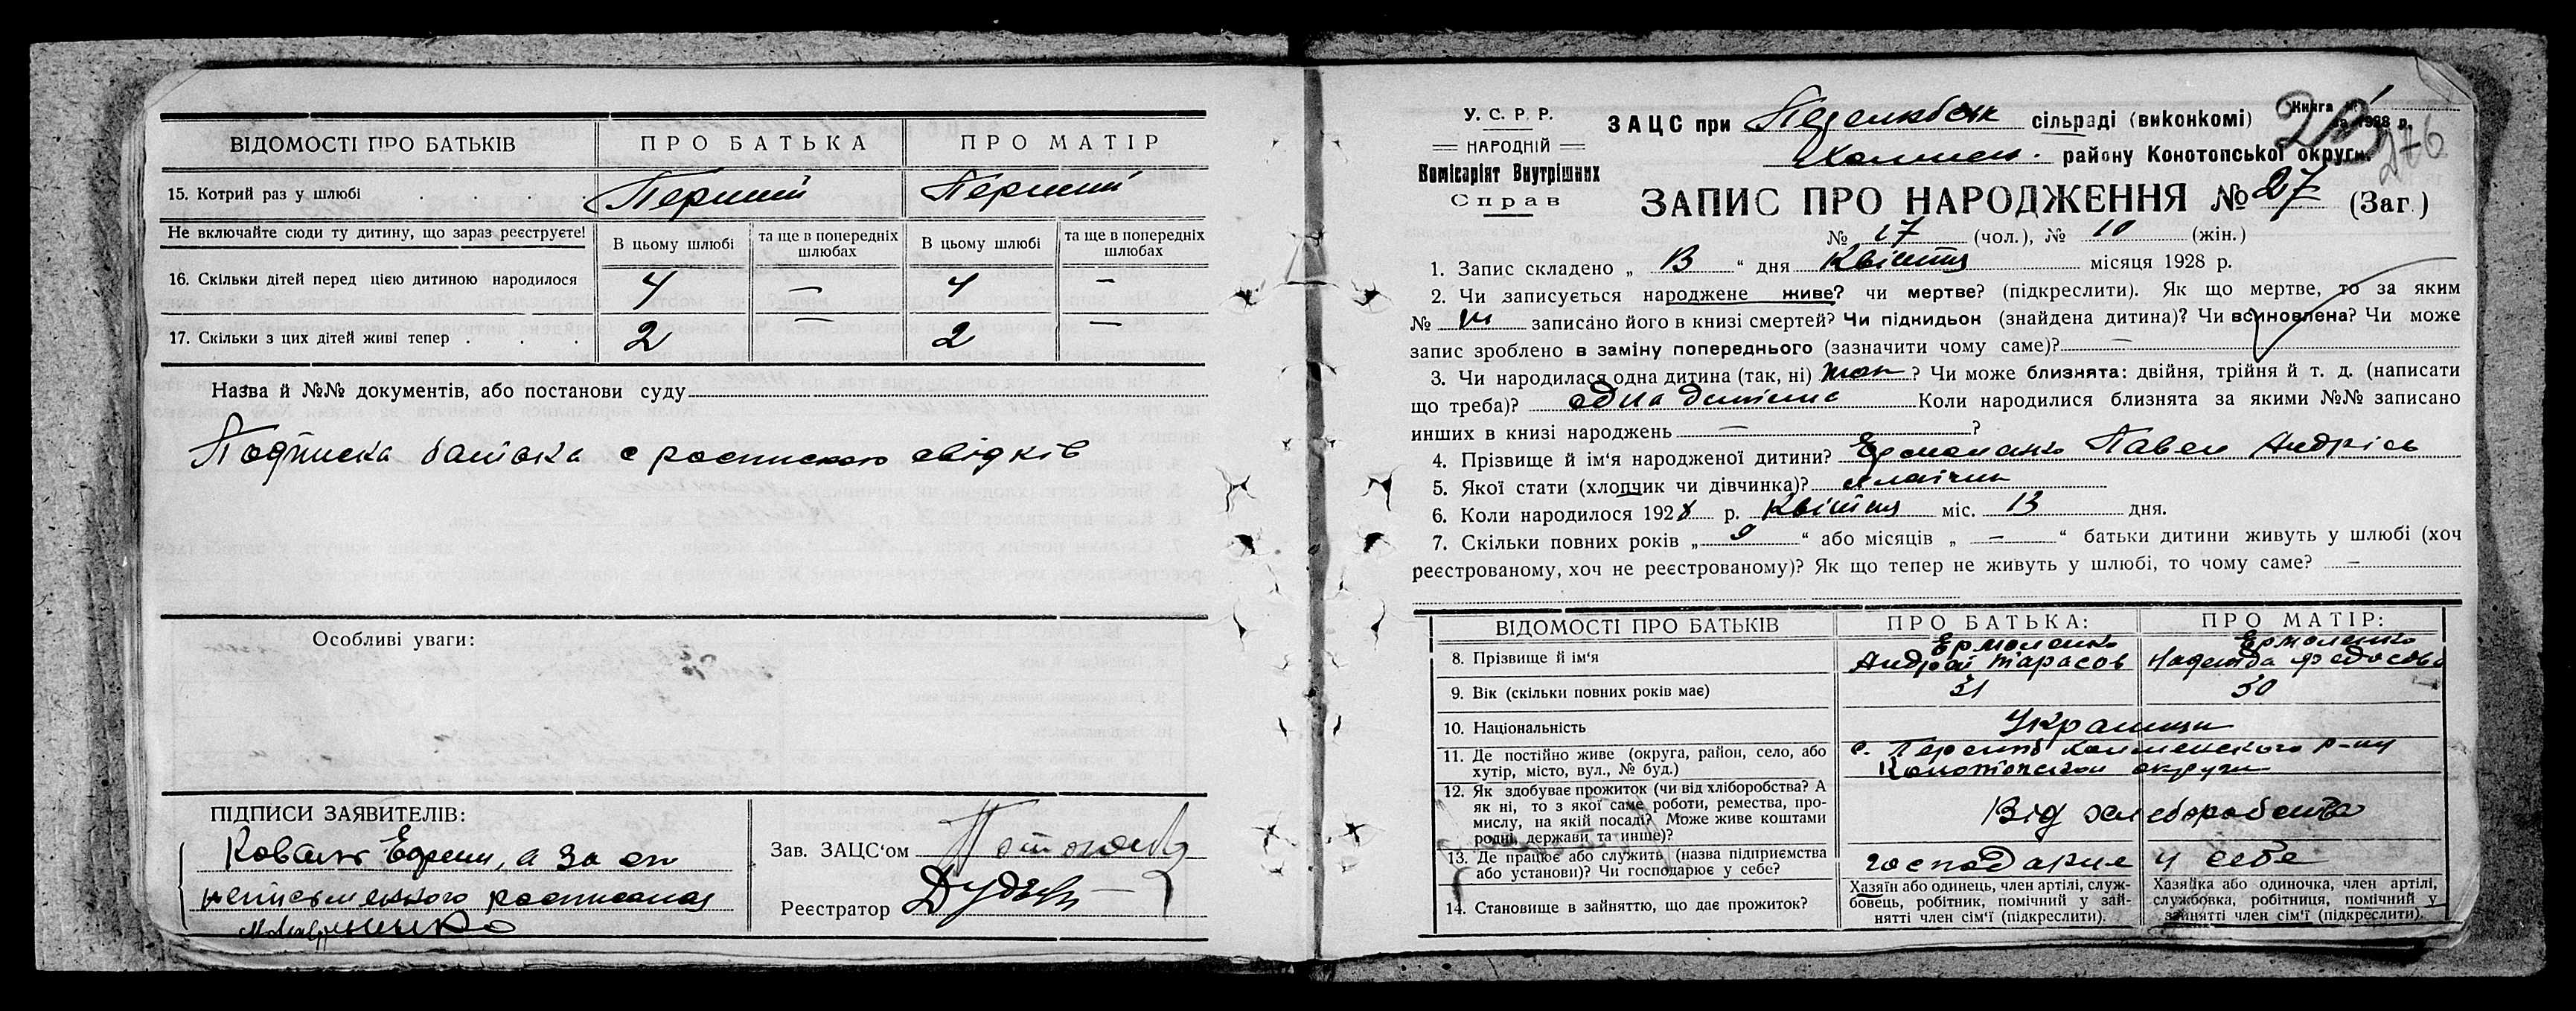 ВІДОМОСТІ ПРО БАТЬКІВ ПРО БАТЬКА ПРО МАТІР
15. Котрий раз у шлюбі . . . . Перший Перший
Не включайте сюди ту дитину, що зараз реєструєте! В цьому шлюбі та ще в попередніх шлюбах В цьому шлюбі та ще в попередніх шлюбах
16. Скільки дітей перед цією дитиною народилося 4 — 4 —
17. Скільки з цих дітей живі тепер . . . 2 — 2 —
Назва й №№ документів, або постанови суду
Подписка батька с росписkою свідків
Особливі уваги:
ПІДПИСИ ЗАЯВИТЕЛІВ:
Коваль Ефрем, а за его
неписьменного росписался
Зав. ЗАЦС‘ом
Реєстратор
У. С. Р. Р.
НАРОДНІЙ
Комісаріят Внутрішних
Справ
Книга № 1
ЗАЦС при сільраді (виконкомі) 1928 р.
276
району Конотопської округи.
ЗАПИС ПРО НАРОДЖЕННЯ № 27 (Заг.)
№ 17 (чол.), № 10 (жін.)
1. Запис складено „ 13 “ дня Квітня місяця 1928 р.
2. Чи записується народжене живе? чи мертве? (підкреслити). Як що мертве, то за яким
№ записано його в книзі смертей? Чи підкидьок (знайдена дитина)? Чи всиновлена? Чи може
запис зроблено в заміну попереднього (зазначити чому саме)? —
3. Чи народилася одна дитина (так, ні) так ? Чи може близнята: двійня, трійня й т. д. (написати
що треба)? одна дитина Коли народилися близнята за якими №№ записано
инших в книзі народжень — ?
4. Прізвище й ім‘я народженої дитини? Ермоленко Павел Андріев
5. Якої стати (хлопчик чи дівчинка)? хлопчик
6. Коли народилося 1928 р. Квітня міс. 13 дня.
7. Скільки повних років „ 9 “ або місяців „ — “ батьки дитини живуть у шлюбі (хоч
реєстрованому, хоч не реєстрованому)? Як що тепер не живуть у шлюбі, то чому саме? —
ВІДОМОСТІ ПРО БАТЬКІВ ПРО БАТЬКА: ПРО МАТІР:
8. Прізвище й ім‘я Ермоленко Андрей Тарасов Ермоленко Надежда Федосова
9. Вік (скільки повних років має) 31 30
10. Національність Украинци
11. Де постійно живе (округа, район, село, або
хутір, місто, вул., № буд.) Конотопской округи
12. Як здобуває прожиток (чи від хліборобства? А
як ні, то з якої саме роботи, ремества, про-
мислу, на якій посаді? Може живе коштами
родні, держави та инше)? Від хлеборобства
13. Де працює або служить (назва підприємства
або установи)? Чи господарює у себе? господарює у себе
14. Становище в зайняттю, що дає прожиток?
Хазяїн або одинець, член артілі, служ-
бовець, робітник, помічний у зай-
нятті член сім‘ї (підкреслити).
Хазяйка або одиночка, член артілі,
службовка, робітниця, помічний у
зайнятті член сім‘ї (підкреслити).